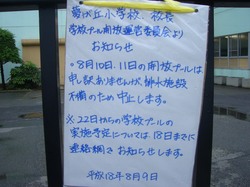 葵が丘小学校 校長
学校プール開放運営委員会より
お知らせ
※8月10日、11日の開放プールは
申し訳ありませんが、排水施設
不備のため中止します。
※22日からの学校プールの
実施予定については18日までに
連絡網でお知らせします。
平成18年8月9日